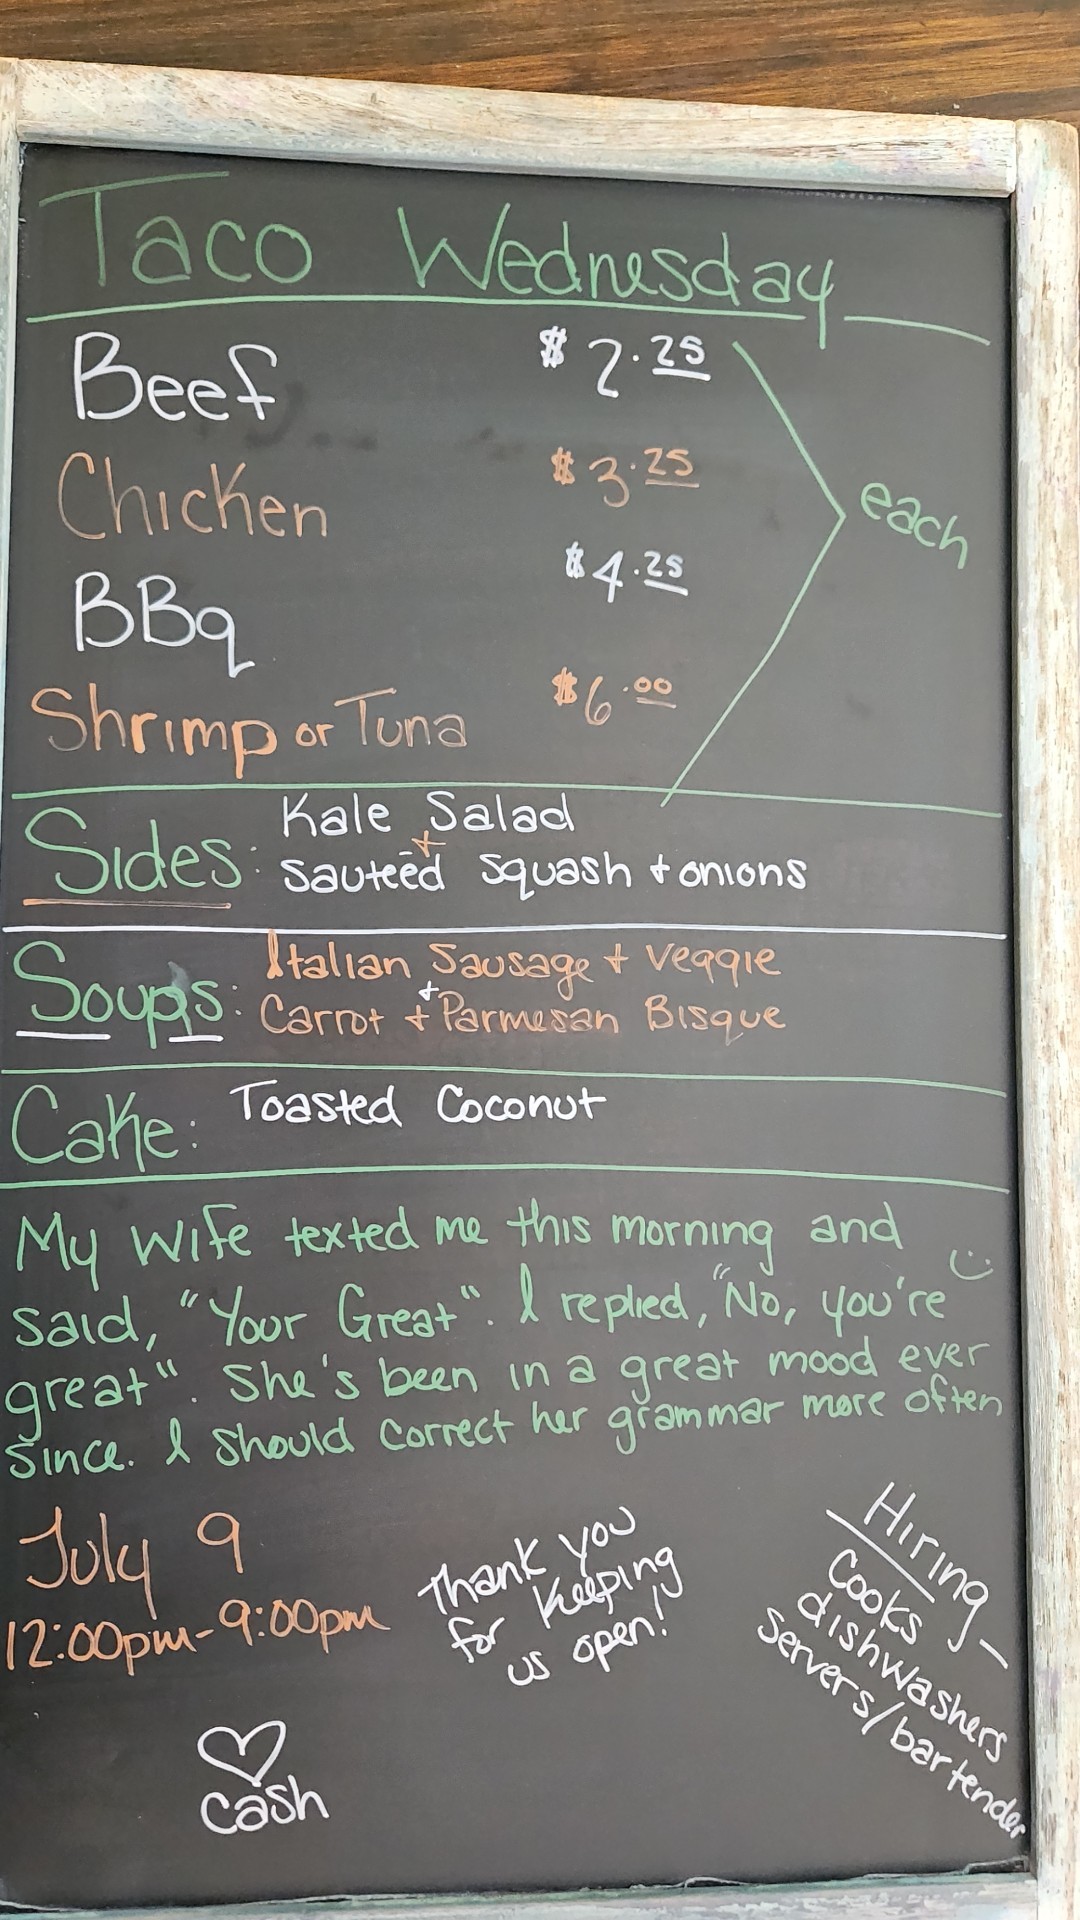 Taco Wednesday
Beef $2.25
Chicken $3.25
each
BBq $4.25
Shrimp or Tuna $6.00
Sides: Kale Salad
+
sauteēd squash + onions
Soups: Italian Sausage + Veggie
+
Carrot + Parmesan Bisque
Cake: Toasted Coconut
My Wife texted me this morning and
said, "Your Great". I replied, "No, you're
great". She's been in a great mood ever
since. I should correct her grammar more often
July 9
12:00pm-9:00pm
Thank you
for keeping
us open!
Hiring
Cooks
dishwashers
servers/bartender
cash